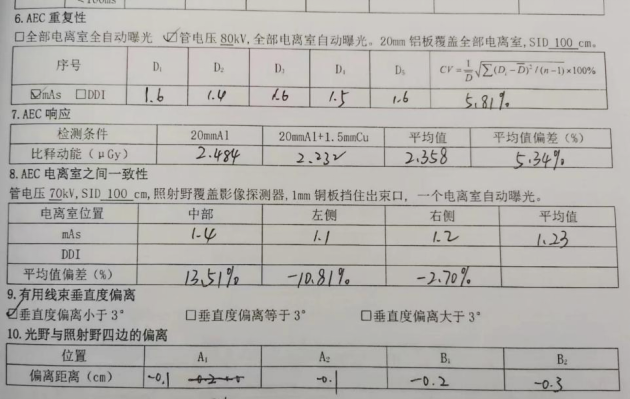 6.AEC 重复性
□全部电离室全自动曝光 ☑管电压 80kV,全部电离室自动曝光。20mm 铝板覆盖全部电离室,SID 100 cm。
序号 D₁ D₂ D₃ D₄ D₅ CV=1/D̄ √∑(Dᵢ-D̄)²/(n-1)×100%
☑mAs □DDI 1.6 1.4 1.6 1.5 1.6 5.81%
7.AEC 响应
检测条件 20mmAl 20mmAl+1.5mmCu 平均值 平均值偏差(%)
比释动能(μGy) 2.484 2.232 2.358 5.34%
8.AEC 电离室之间一致性
管电压 70kV,SID 100 cm,照射野覆盖影像探测器,1mm 铜板挡住出束口，一个电离室自动曝光。
电离室位置 中部 左侧 右侧 平均值
mAs 1.4 1.1 1.2 1.23
DDI
平均值偏差(%) 13.51% -10.81% -2.70%
9.有用线束垂直度偏离
☑垂直度偏离小于 3° □垂直度偏离等于 3° □垂直度偏离大于 3°
10.光野与照射野四边的偏离
位置 A₁ A₂ B₁ B₂
偏离距离(cm) -0.1 -0.1 -0.2 -0.3